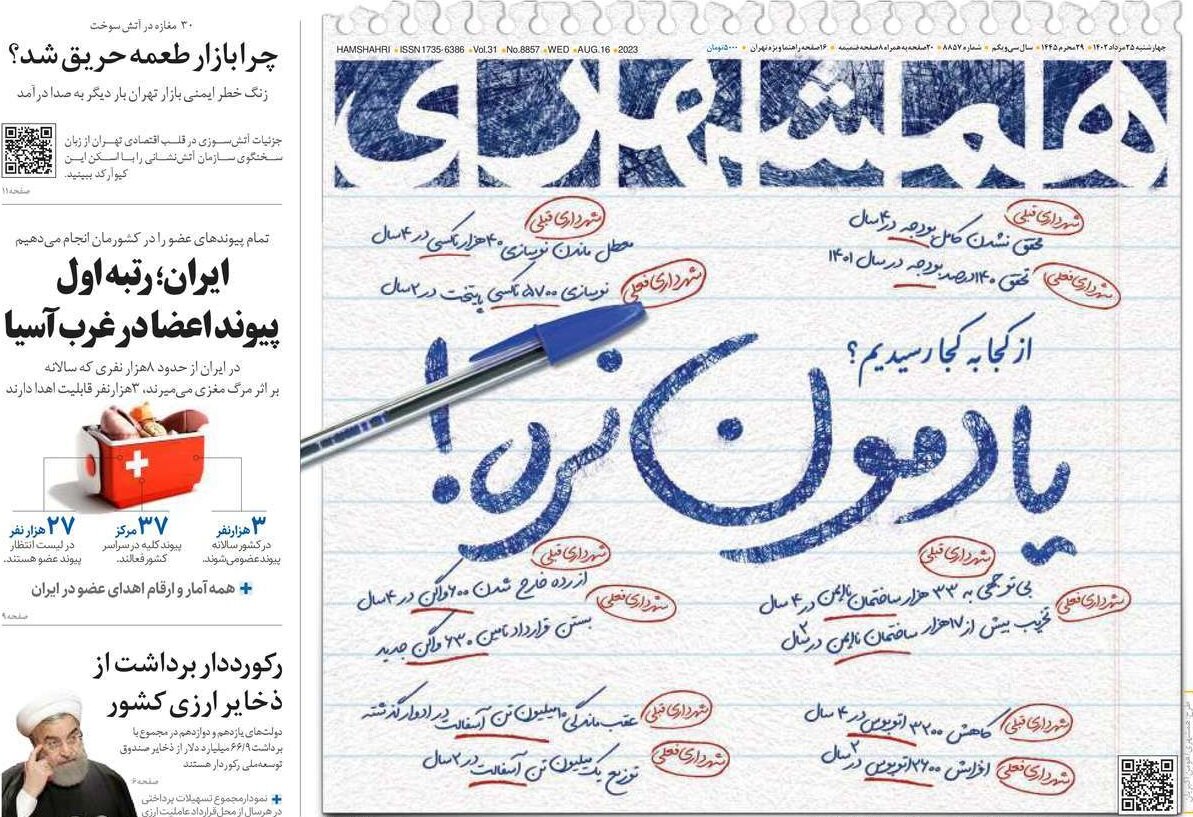 چهارشنبه ۲۵ مرداد ۱۴۰۲ • ۲۹ محرم ۱۴۴۵ • سال سی و یکم • شماره ۸۸۵۷ • ۲۰ صفحه به همراه ۸ صفحه ضمیمه • ۱۶ صفحه راهنما ویژه تهران • ۵۰۰۰ تومان
HAMSHAHRI • ISSN 1735-6386 • Vol.31 • No.8857 • WED • AUG.16 • 2023
همشهری
شهرداری قبلی
محقق نشدن کامل بودجه در ۴ سال
شهرداری فعلی
تحقق ۱۴۰ درصد بودجه در سال ۱۴۰۱
شهرداری قبلی
معطل ماندن نوسازی ۴۰ هزار تاکسی در ۴ سال
شهرداری فعلی
نوسازی ۵۷۰۰ تاکسی پایتخت در ۲ سال
از کجا به کجا رسیدیم؟
یادمون نره!
شهرداری قبلی
بی‌توجهی به ۳۳ هزار ساختمان ناایمن در ۴ سال
شهرداری فعلی
تخریب بیش از ۱۷ هزار ساختمان ناایمن در ۲ سال
شهرداری قبلی
از رده خارج شدن ۶۰۰ واگن در ۴ سال
شهرداری فعلی
بستن قرارداد تامین ۶۳۰ واگن جدید
شهرداری قبلی
کاهش ۳۲۰۰ اتوبوس در ۴ سال
شهرداری فعلی
افزایش ۲۶۰۰ اتوبوس در ۲ سال
شهرداری قبلی
عقب ماندگی ۱۰ میلیون تن آسفالت در ادوار گذشته
شهرداری فعلی
توزیع یک میلیون تن آسفالت در ۲ سال
۳۰ مغازه در آتش سوخت
چرا بازار طعمه حریق شد؟
زنگ خطر ایمنی بازار تهران بار دیگر به صدا درآمد
جزئیات آتش‌سوزی در قلب اقتصادی تهران از زبان
سخنگوی سازمان آتش‌نشانی را با اسکن این
کیوآرکد ببینید.
صفحه ۱۱
تمام پیوندهای عضو را در کشورمان انجام می‌دهیم
ایران؛ رتبه اول
پیوند اعضا در غرب آسیا
در ایران از حدود ۸ هزار نفری که سالانه
بر اثر مرگ مغزی می‌میرند، ۳ هزار نفر قابلیت اهدا دارند
۳ هزار نفر
در کشور سالانه
پیوند عضو می‌شوند.
۳۷ مرکز
پیوند کلیه در سراسر
کشور فعالند.
۲۷ هزار نفر
در لیست انتظار
پیوند عضو هستند.
+ همه آمار و ارقام اهدای عضو در ایران
صفحه ۹
رکورددار برداشت از
ذخایر ارزی کشور
دولت‌های یازدهم و دوازدهم در مجموع با
برداشت ۶۶/۹ میلیارد دلار از ذخایر صندوق
توسعه ملی رکورددار هستند
صفحه ۶
+ نمودار مجموع تسهیلات پرداختی
در هر سال از محل قرارداد عاملیت ارزی